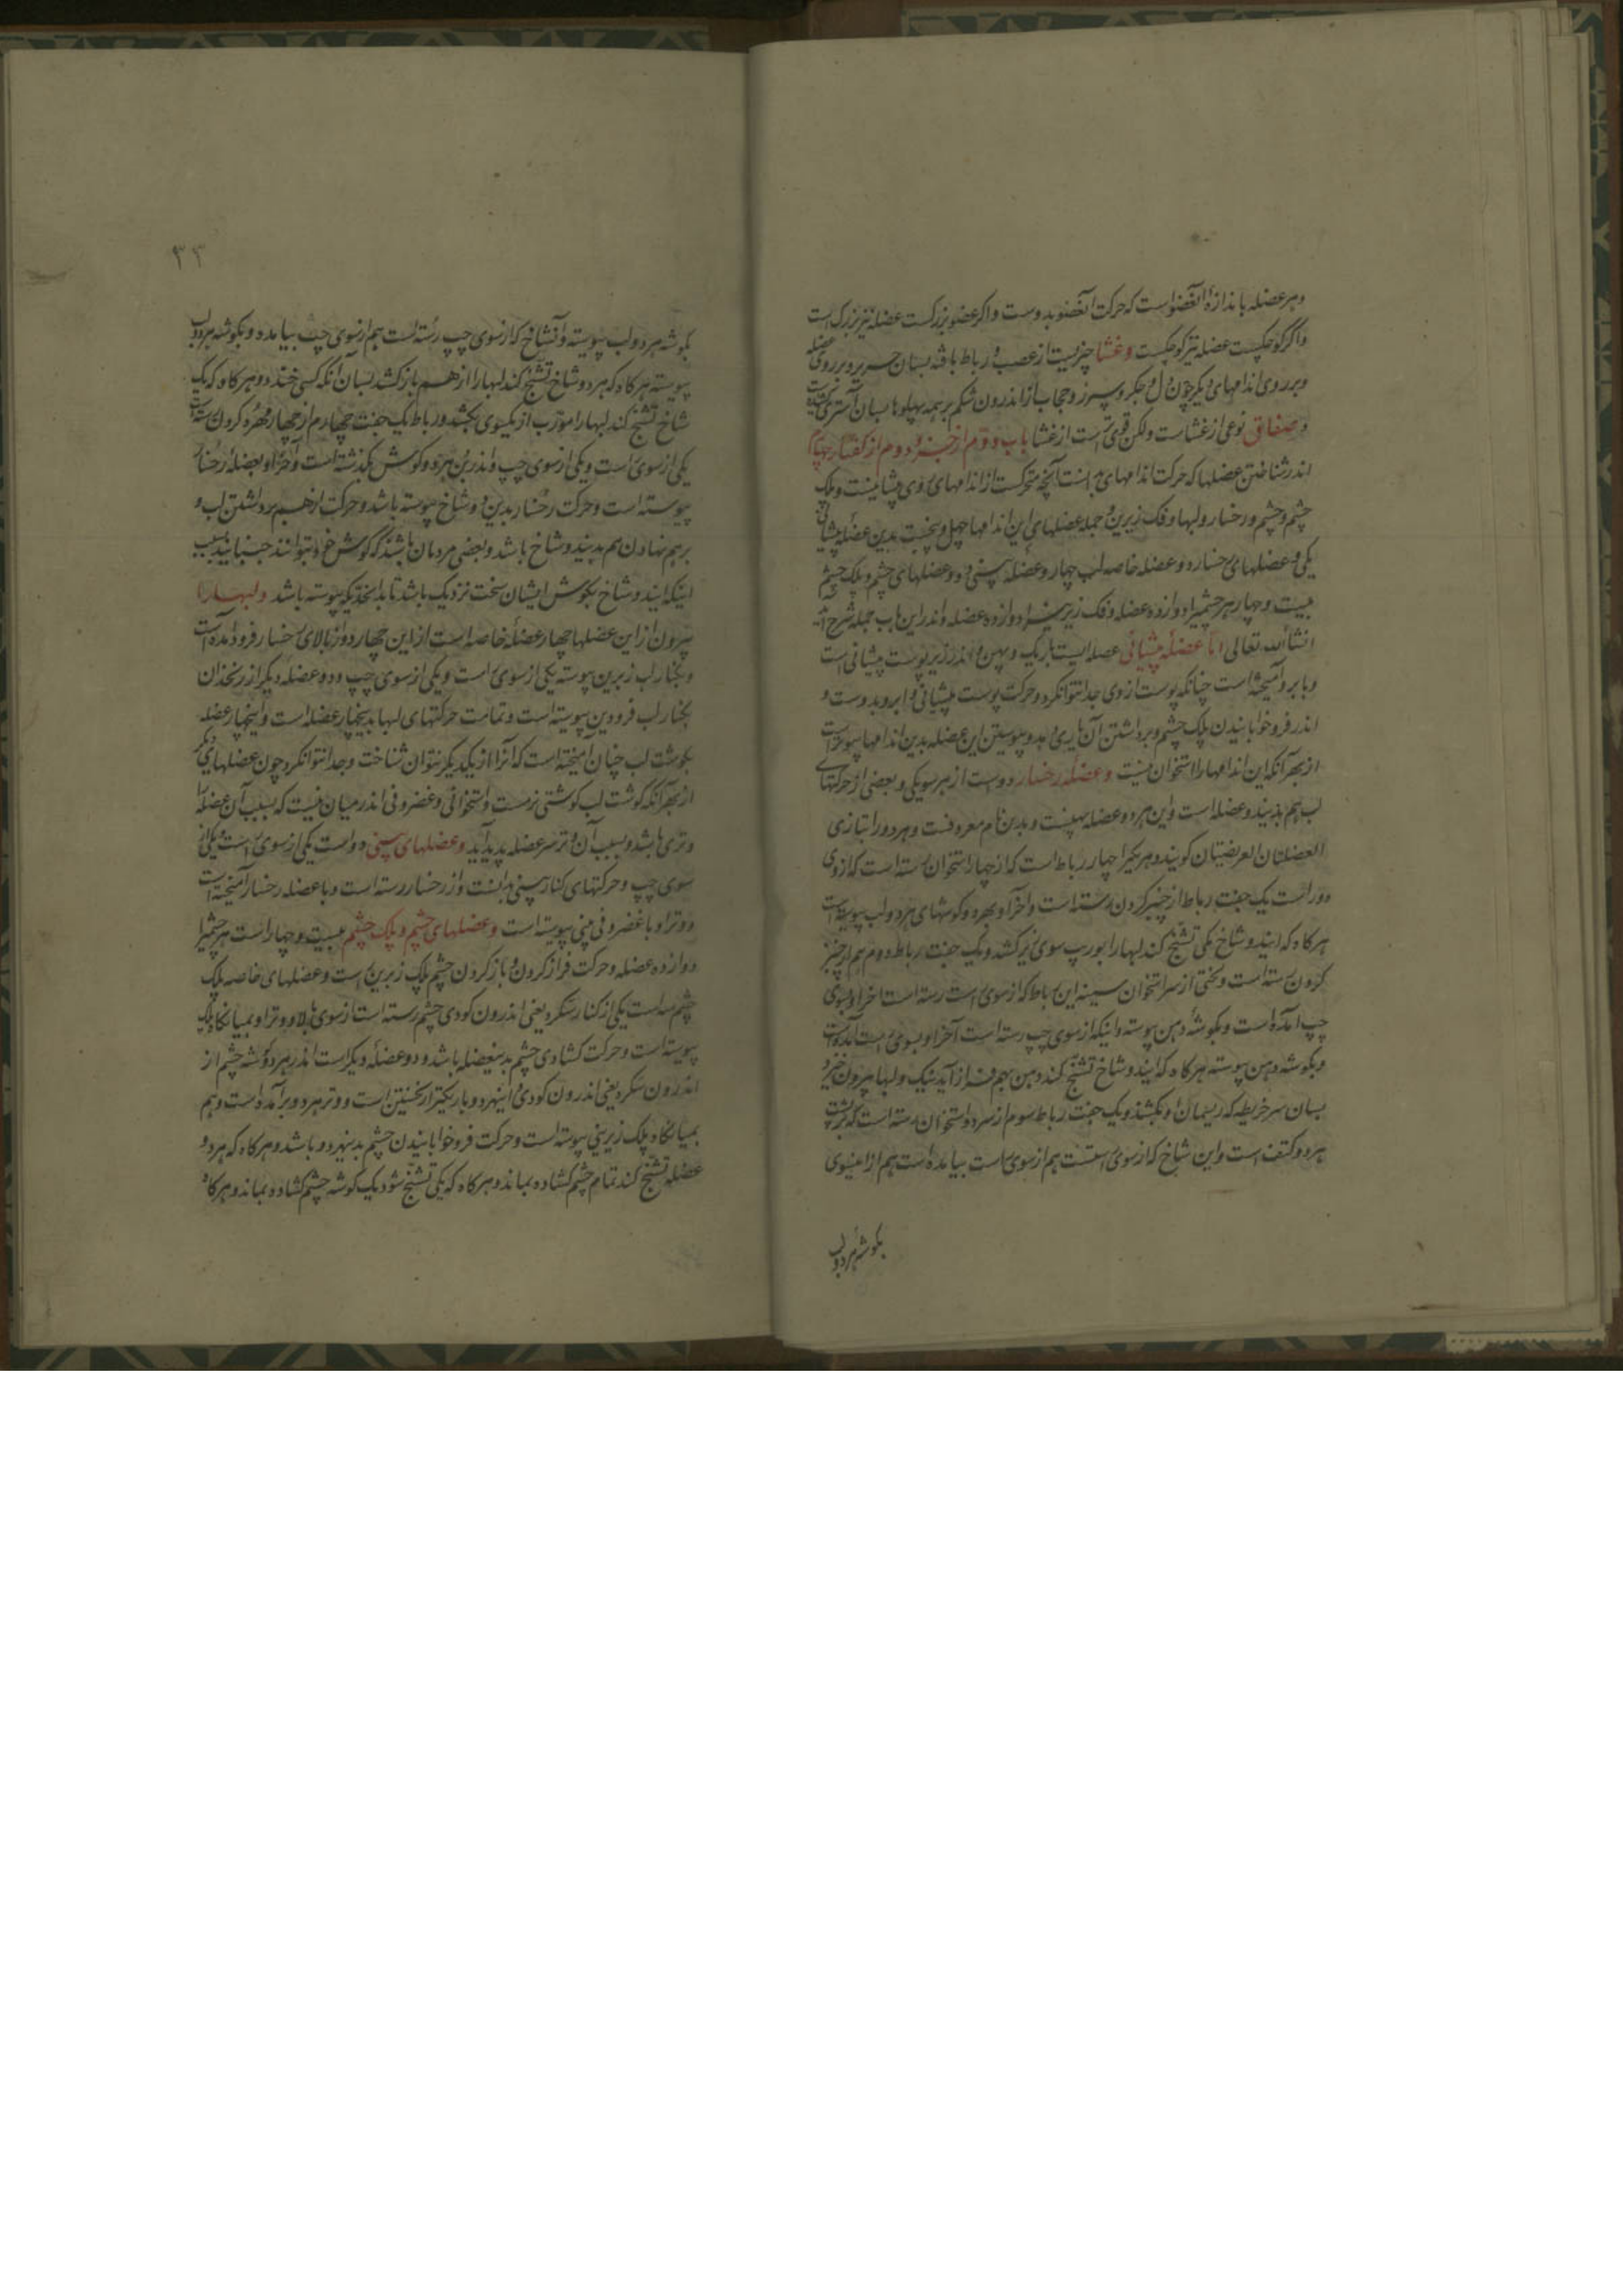 وهر عضله باندازهٔ آنعضواست که حرکت آنعضو بدوست واکر عضو بزرکست عضله نیز بزرک است
واکر کوچکست عضله نیز کوچکست وغشا چیزیست از عصب و رباط بافته بسان حریر و بر روی عضله
وبر روی اندامهای دیکر چون دل و جکر و سپرز و حجاب از اندرون شکم بر همه پهلوها بسان آستر کشیده است
وصفاق نوعی از غشاست ولکن قوی تر است از غشا باب دوم از جزو دوم از کفتار چهارم
اندر شناختن عضلها که حرکت اندامهای روی بدانست آنچه متحرکست از اندامهای روی پیشانیست وپلک
چشم و چشم و رخسار ولبها وفک زیرین و جمله عضلهای این اندامها چهل و پنجست بدین عضلهٔ پیشانی
یکی وعضلهای رخسار دو وعضله خاصه لب چهار وعضلهٔ بینی دو وعضلهای چشم و پلک چشم
بیست و چهار هر چشمیرا دوازده عضله وفک زیرین را دوازده عضله واندر این باب جمله شرح آید
انشاءالله تعالی اما عضلهٔ پیشانی عضله ایست باریک و پهن و اندر زیر پوست پیشانی است
وبا بروآمیخته است چنانکه پوست از وی جدا نتوانکرد وحرکت پوست پیشانی و ابرو بدوست و
اندر فرو خوابانیدن پلک چشم و برداشتن آن یاری دهد و پیوستن این عضله بدین اندامها پیوسته است
از بهر آنکه این اندامها را استخوان نیست وعضلهٔ رخسار دوست از هر سو یکی و بعضی از حرکتهای
لب هم بدیندو عضله است واین هر دو عضله پهنست و بدین نام معروفست وهر دو را بتازی
العضلتان العریضیتان کویند وهر یکیرا چهار رباط است که از چهار استخوان رسته است که از وی
دور است یک جفت رباط از چنبر کردن رسته است وآخر او بهر دو کوشهای هر دو لب پیوسته است
هر کاه که ایندو شاخ یکی تشنج کند لبها را بورب سوی زیر کشد ویک جفت رباط دوم هم از چنبر
کردن رسته است و لختی از سر استخوان سینه این رباط که از سوی راست رسته است آخر او بسوی
چپ آمده است و بکوشهٔ دهن پیوسته وانیکه از سوی چپ رسته است آخر او بسوی راست آمده است
وبکوشه دهن پیوسته هر کاه که ایندو شاخ تشنج کند دهن بهم فراز آید تنک ولبها بیرون خیزد
بسان سر خریطه که ریسمان او بکشند ویک جفت رباط سوم از سر دو استخوان رسته است که بر پشت
هر دو کتف است واین شاخ که از سوی راستست هم از سوی راست بیامده است هم از اینسوی
بکوشهٔ هر دو لب
٣٣
بکوشه هر دو لب پیوسته وآنشاخ که از سوی چپ رسته است هم از سوی چپ بیامده و بکوشه هر دو لب
پیوسته هر کاه که هر دو شاخ تشنج کند لبها را از هم باز کشد بسان آنکه کسی خندد وهر کاه که یک
شاخ تشنج کند لبها را مورّب از یکسوی بکشد ورباط یک جفت چهارم از چهار مهره کردن رسته است
یکی از سوی راست ویکی از سوی چپ واندر بن هر دو کوش بکذشته است وآخر او بعضلهٔ رخسار
پیوسته است وحرکت رخسار بدین دو شاخ پیوسته باشد وحرکت از هم برداشتن لب و
بر هم نهادن هم بدیندو شاخ باشد و بعضی مردمان باشند که کوش خود بتوانند جنبانید بسبب
اینکه ایندو شاخ بکوش ایشان سخت نزدیک باشد تا بدانحد که پیوسته باشد ولبها را
بیرون از این عضلها چهار عضلهٔ خاصه است از این چهار دو از بالای رخسار فرود آمده است
وبکنار لب زبرین پیوسته یکی از سوی راست ویکی از سوی چپ ودو عضلهٔ دیکر از زنخدان
بکنار لب فرودین پیوسته است وتمامت حرکتهای لبها بدینچهار عضله است واینچهار عضله
بکوشت لب چنان آمیخته است که آنرا از یکدیکر نتوان شناخت وجدا نتوانکرد چون عضلهای دیکر
از بهر آنکه کوشت لب کوشتی نرمست واستخوانی وغضروفی اندر میان نیست که بسبب آن عضله را
وتری باشد وبسبب آن وتر سر عضله پدید آید وعضلهای بینی دواست یکی از سوی راست ویکی از
سوی چپ وحرکتهای کنار بینی بدانست واز رخسار رسته است وبا عضله رخسار آمیخته است
ووتر او با غضروفی بینی پیوسته است وعضلهای چشم وپلک چشم بیست وچهار است هر چشمیرا
دوازده عضله وحرکت فراز کردن و باز کردن چشم پلک زبرین راست وعضلهای خاصه پلک
چشم سه است یکی از کنار سکره یعنی اندرون کودی چشم رسته است از سوی بالا ووتر او بمیانکاه پلک
پیوسته است وحرکت کشادی چشم بدینعضله باشد ودو عضلهٔ دیکر است اندر هر دو کوشه چشم از
اندرون سکره یعنی اندرون کودی و اینهر دو باریکتر از نخستین است ووتر هر دو برآمده است وهم
بمیانکاه پلک زیرینی پیوسته است وحرکت فرو خوابانیدن چشم بدینهر دو باشد وهر کاه که هر دو
عضله تشنج کند تمام چشم کشاده بماند وهر کاه که یکی تشنج شود یک کوشه چشم کشاده بماند وهر کاه